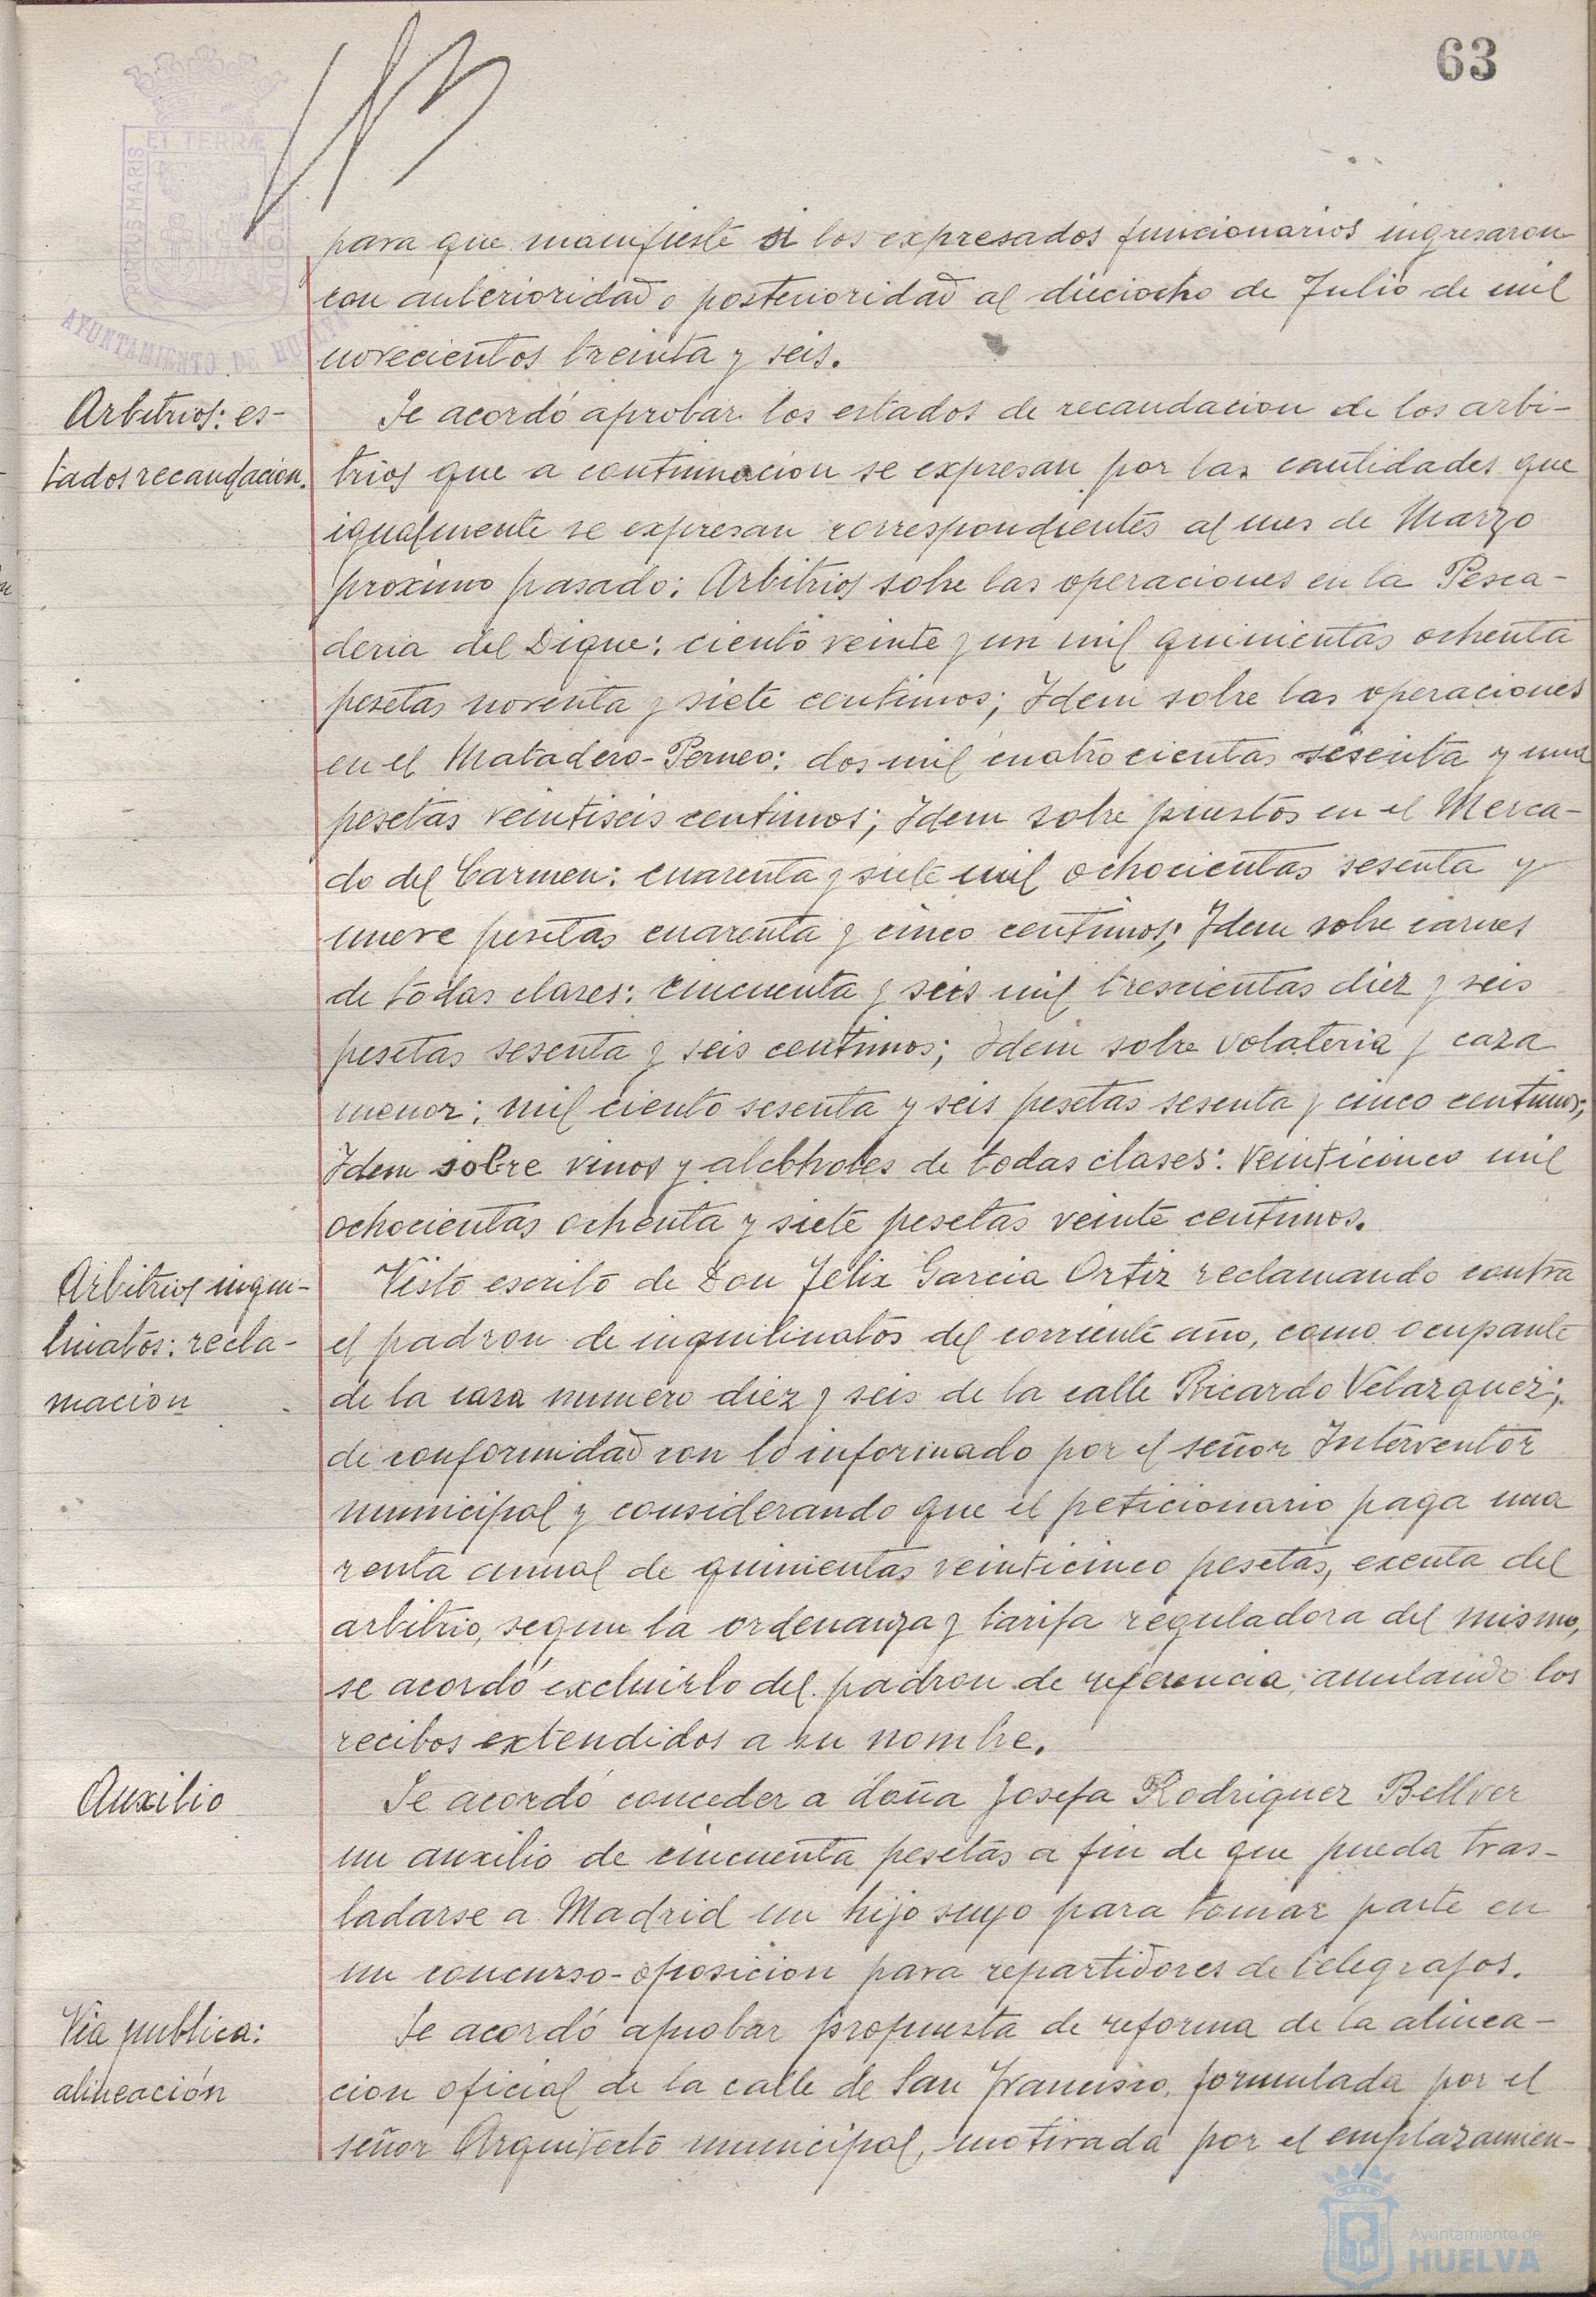 63
ET TERRÆ
PORTUS MARIS
AYUNTAMIENTO DE HUELVA
para que manifieste si los expresados funcionarios ingresaron
con anterioridad o posterioridad al dieciocho de Julio de mil
novecientos treinta y seis.
Arbitrios: es-
tados recaudacion.
Se acordó aprobar los estados de recaudacion de los arbi-
trios que a continuacion se expresan por las cantidades que
igualmente se expresan correspondientes al mes de Marzo
proximo pasado: Arbitrios sobre las operaciones en la Pesca-
deria del Dique: ciento veinte y un mil quinientas ochenta
pesetas noventa y siete centimos; Idem sobre las operaciones
en el Matadero-Perneo: dos mil cuatrocientas sesenta y una
pesetas veintiseis centimos; Idem sobre puestos en el Merca-
do del Carmen: cuarenta y siete mil ochocientas sesenta y
nueve pesetas cuarenta y cinco centimos; Idem sobre carnes
de todas clases: cincuenta y seis mil trescientas diez y seis
pesetas sesenta y seis centimos; Idem sobre volateria y caza
menor: mil ciento sesenta y seis pesetas sesenta y cinco centimos;
Idem sobre vinos y alcohholes de todas clases: veinticinco mil
ochocientas ochenta y siete pesetas veinte centimos.
Arbitrios inqui-
linatos: recla-
macion
Visto escrito de Don Felix Garcia Ortiz reclamando contra
el padron de inquilinatos del corriente año, como ocupante
de la casa numero diez y seis de la calle Ricardo Velazquez;
de conformidad con lo informado por el señor Interventor
municipal y considerando que el peticionario paga una
renta anual de quinientas veinticinco pesetas, exenta del
arbitrio, segun la ordenanza y tarifa reguladora del mismo,
se acordó excluirlo del padron de referencia, anulando los
recibos extendidos a su nombre.
Auxilio
Se acordó conceder a doña Josefa Rodriguez Bellver
un auxilio de cincuenta pesetas a fin de que pueda tras-
ladarse a Madrid un hijo suyo para tomar parte en
un concurso-oposicion para repartidores de telegrafos.
Via publica:
alineación
Se acordó aprobar propuesta de reforma de la alinea-
cion oficial de la calle de San Francisco, formulada por el
señor Arquitecto municipal, motivada por el emplazamien-
Ayuntamiento de
HUELVA